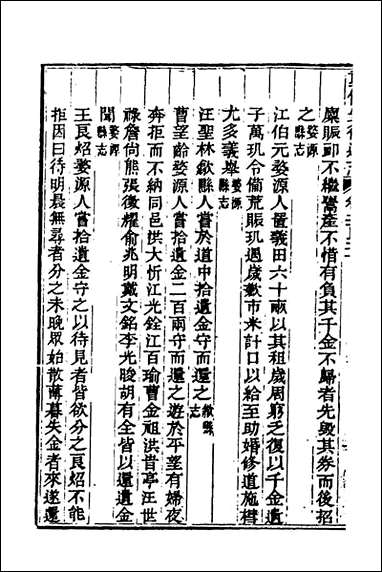 糜賑卹不繼鬻產不惜有負其千金不歸者先毀其券而後招
之婺源縣志
江伯元婺源人置義田六十畝以其租歲周窮乏復以千金遺
子萬璣令備荒賑璣遇歲歉市米計口以給至助婚修道施槥
尤多義舉婺源縣志
汪聖林歙縣人嘗於道中拾遺金守而還之歙縣志
曹望齡婺源人嘗拾遺金二百兩守而還之遊於平望有婦夜
奔拒而不納同邑洪大忻江光銓江百瑜曹金祖洪昔亭汪世
祿詹尙熊張徵耀俞兆明戴文銘李光晙胡有全皆以還遺金
聞婺源縣志
王良炤婺源人嘗拾遺金守之以待見者皆欲分之良炤不能
拒因曰待明晨無尋者分之未晚眾始散薄暮失金者來遂還